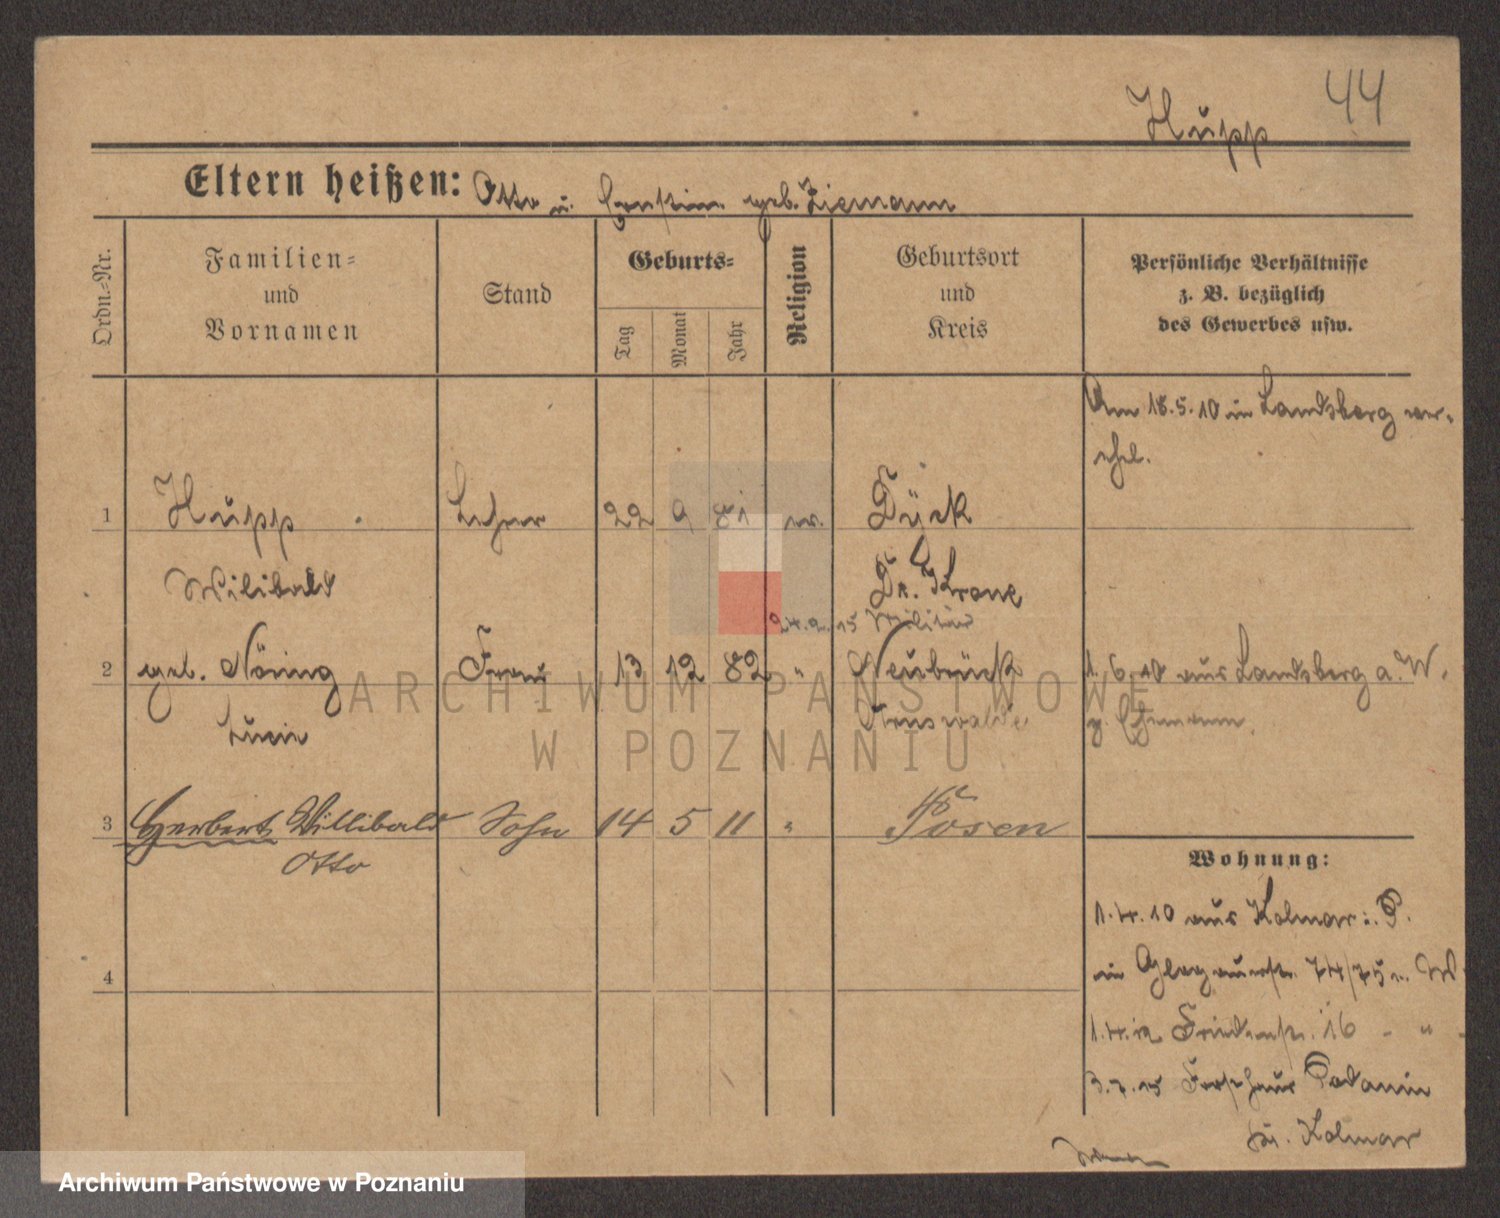 44
Hupp
Eltern heißen: Otto u. Ernstine geb. Ziemann
Ordn.-Nr.
Familien-
und
Vornamen
Stand
Geburts-
Tag
Monat
Jahr
Religion
Geburtsort
und
Kreis
Persönliche Verhältnisse
z. B. bezüglich
des Gewerbes usw.
Am 18.5.10 in Landsberg ver-
ehel.
1 Hupp Lehrer 22 9 81 ev. Dyck
Wilibald Dt. Krone
24.2.15 Militär
2 geb. Nöring Frau 13 12 82 " Neubrück 1.6.10 aus Landsberg a. W.
Lucie Arnswalde z. Ehemann.
3 Herbert Willibald Sohn 14 5 11 " Posen
Otto
Wohnung:
1.4.10 aus Kolmar i. P.
in Glogauerstr. 74/75 W
4
1.4.12 Friedenstr. 16 - " -
3.7.15 Forsthaus Podanin
Kr. Kolmar
ARCHIWUM PAŃSTWOWE
W POZNANIU
Archiwum Państwowe w Poznaniu